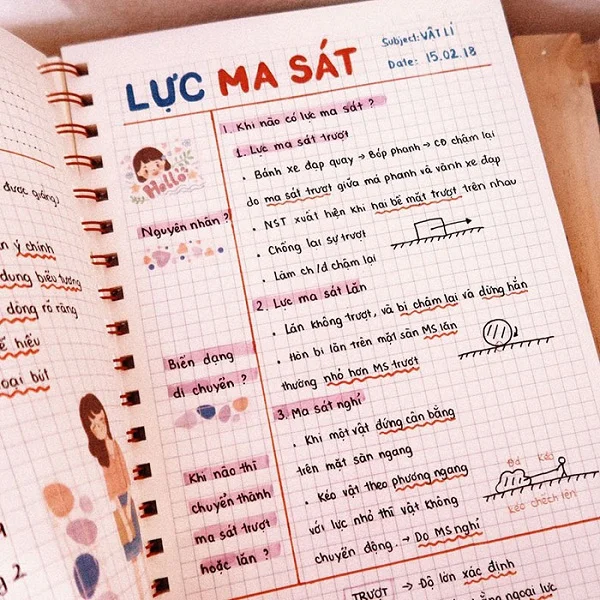 Subject: VẬT LÍ
Date: 15.02.18
LỰC MA SÁT
1. Khi nào có lực ma sát ?
1. Lực ma sát trượt
• Bánh xe đạp quay → Bóp phanh → CĐ chậm lại
do ma sát trượt giữa má phanh và vành xe đạp
• NST xuất hiện khi hai bề mặt trượt trên nhau
• Chống lại sự trượt
• Làm ch/đ chậm lại
2. Lực ma sát lăn
• Lăn không trượt, và bị chậm lại và dừng hẳn
• Hòn bi lăn trên mặt sân MS lăn
thường nhỏ hơn MS trượt
3. Ma sát nghỉ
• Khi một vật đứng cân bằng
trên mặt sàn ngang
• Kéo vật theo phương ngang
với lực nhỏ thì vật không
chuyển động. → Do MS nghỉ
Đá Kéo
Kéo chếch lên
TRƯỢT → Độ lớn xác định
bằng ngoại lực
Hello
Nguyên nhân ?
Biến dạng
di chuyển ?
Khi nào thì
chuyển thành
ma sát trượt
hoặc lăn ?
được quãng?
ý chính
dung biểu tượng
dòng rõ ràng
hiểu
loại bút
2